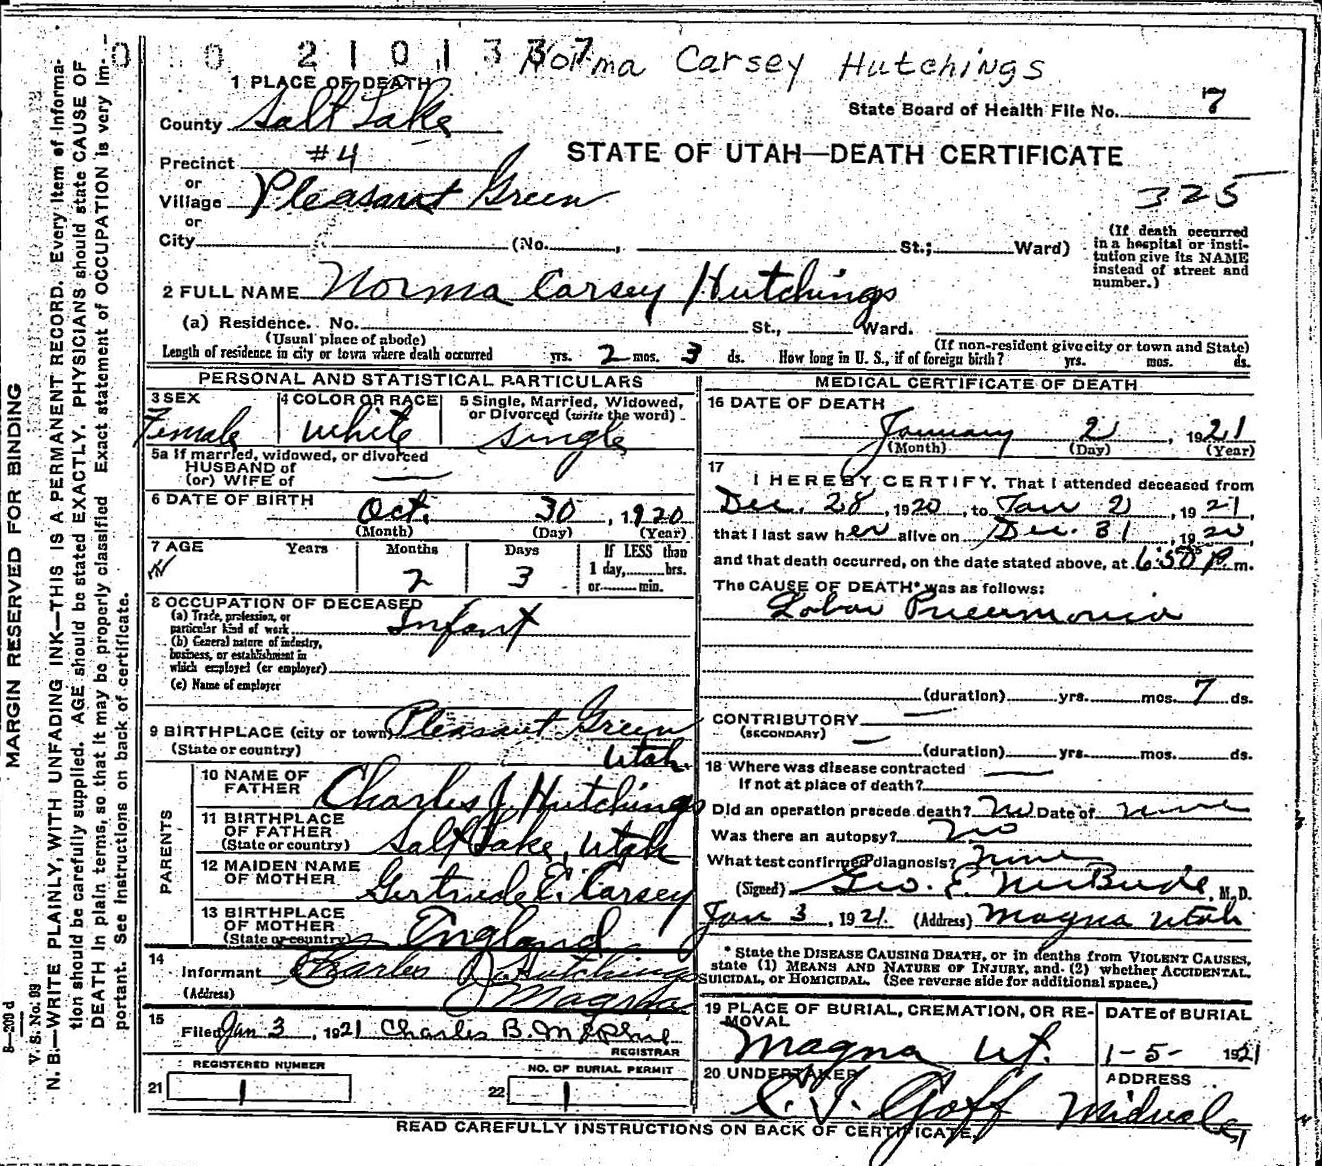 0 0 2 1 0 1 3 3 7
Norma Carsey Hutchings
1 PLACE OF DEATH
County Salt Lake
State Board of Health File No. 7
Precinct #4
STATE OF UTAH—DEATH CERTIFICATE
or
Village Pleasant Green
325
or
City (No. , St.; Ward)
(If death occurred in a hospital or insti-
tution give its NAME
instead of street and
number.)
2 FULL NAME Norma Carsey Hutchings
(a) Residence. No. St., Ward.
(Usual place of abode) (If non-resident give city or town and State)
Length of residence in city or town where death occurred yrs. 2 mos. 3 ds. How long in U. S., if of foreign birth? yrs. mos. ds.
PERSONAL AND STATISTICAL PARTICULARS
3 SEX 4 COLOR OR RACE 5 Single, Married, Widowed,
or Divorced (write the word)
Female white single
5a If married, widowed, or divorced
HUSBAND of
(or) WIFE of
6 DATE OF BIRTH
Oct. 30, 1920
(Month) (Day) (Year)
7 AGE Years Months Days If LESS than
1 day, hrs.
2 3 or min.
8 OCCUPATION OF DECEASED
(a) Trade, profession, or
particular kind of work Infant
(b) General nature of industry,
business, or establishment in
which employed (or employer)
(c) Name of employer
9 BIRTHPLACE (city or town) Pleasant Green
(State or country) Utah.
PARENTS
10 NAME OF
FATHER Charles J. Hutchings
11 BIRTHPLACE
OF FATHER
(State or country) Salt Lake, Utah
12 MAIDEN NAME
OF MOTHER Gertrude E. Carsey
13 BIRTHPLACE
OF MOTHER
(State or country) England
14
Informant Charles J. Hutchings
(Address) Magna
15
Filed Jan 3, 1921 Charles B.
REGISTRAR
REGISTERED NUMBER
21 1
NO. OF BURIAL PERMIT
22 1
MEDICAL CERTIFICATE OF DEATH
16 DATE OF DEATH
January 2, 1921
(Month) (Day) (Year)
17
I HEREBY CERTIFY, That I attended deceased from
Dec. 28, 1920, to Jan 2, 1921
that I last saw her alive on Dec. 31, 1920
and that death occurred, on the date stated above, at 6:50 P. m.
The CAUSE OF DEATH* was as follows:
Lobar Pneumonia
(duration) yrs. mos. 7 ds.
CONTRIBUTORY
(SECONDARY)
(duration) yrs. mos. ds.
18 Where was disease contracted
If not at place of death?
Did an operation precede death? No Date of none
Was there an autopsy? No
What test confirmed diagnosis? none
(Signed) Geo. E. McBride, M. D.
Jan 3, 1921. (Address) Magna Utah
* State the DISEASE CAUSING DEATH, or in deaths from VIOLENT CAUSES,
state (1) MEANS AND NATURE OF INJURY, and (2) whether ACCIDENTAL,
SUICIDAL, or HOMICIDAL. (See reverse side for additional space.)
19 PLACE OF BURIAL, CREMATION, OR RE-
MOVAL
Magna Ut.
DATE of BURIAL
1-5- 1921
20 UNDERTAKER Goff
ADDRESS
Midvale
READ CAREFULLY INSTRUCTIONS ON BACK OF CERTIFICATE.
MARGIN RESERVED FOR BINDING
N. B.—WRITE PLAINLY, WITH UNFADING INK—THIS IS A PERMANENT RECORD. Every item of informa-
tion should be carefully supplied. AGE should be stated EXACTLY. PHYSICIANS should state CAUSE OF
DEATH in plain terms, so that it may be properly classified. Exact statement of OCCUPATION is very im-
portant. See instructions on back of certificate.